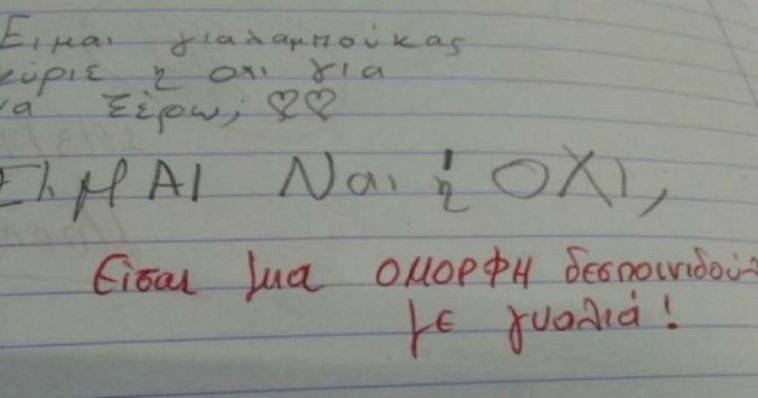 Ειμαι γιαλαμπούκας
κύριε η οχι για
να ξέρω; ♡♡
ΕΙμΑΙ Ναι ή ΟΧΙ;
Είσαι μια ΟΜΟΡΦΗ δεσποινιδούλα
με γυαλιά!